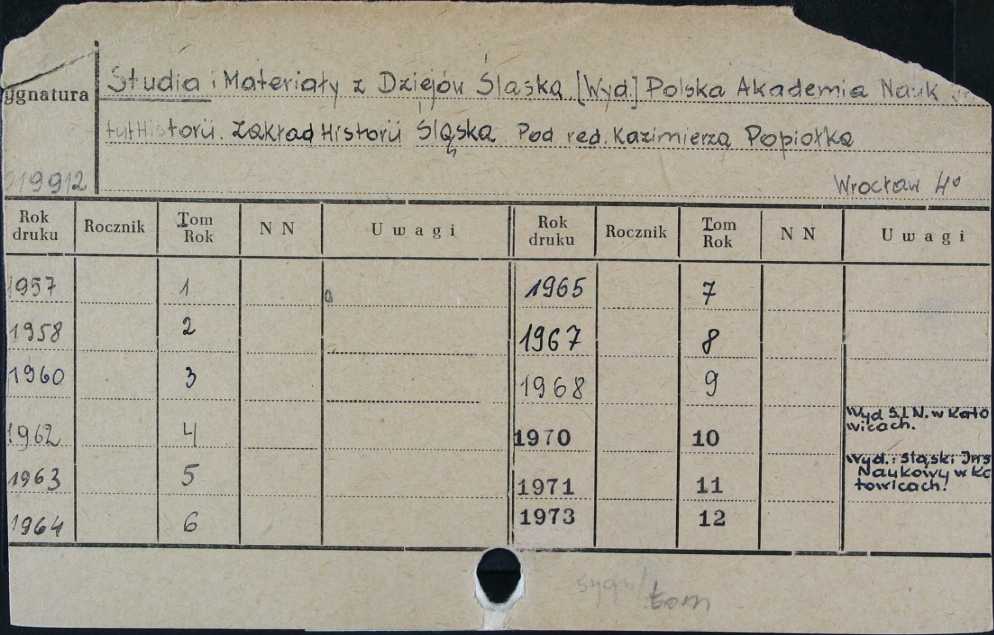 Sygnatura
Studia i Materiały z Dziejów Śląska [Wyd.] Polska Akademia Nauk
tyt Historii. Zakład Historii Śląska Pod red. Kazimierza Popiołka
19912
Wrocław 4°
Rok druku Rocznik Tom Rok NN Uwagi Rok druku Rocznik Tom Rok NN Uwagi
1957 1 1965 7
1958 2 1967 8
1960 3 1968 9
1962 4 1970 10 Wyd Ś.I.N. w Kato
wicach.
1963 5 1971 11 Wyd. : Śląski Ins
Naukowy w Ka
towicach.
1964 6 1973 12
sygn/
tom